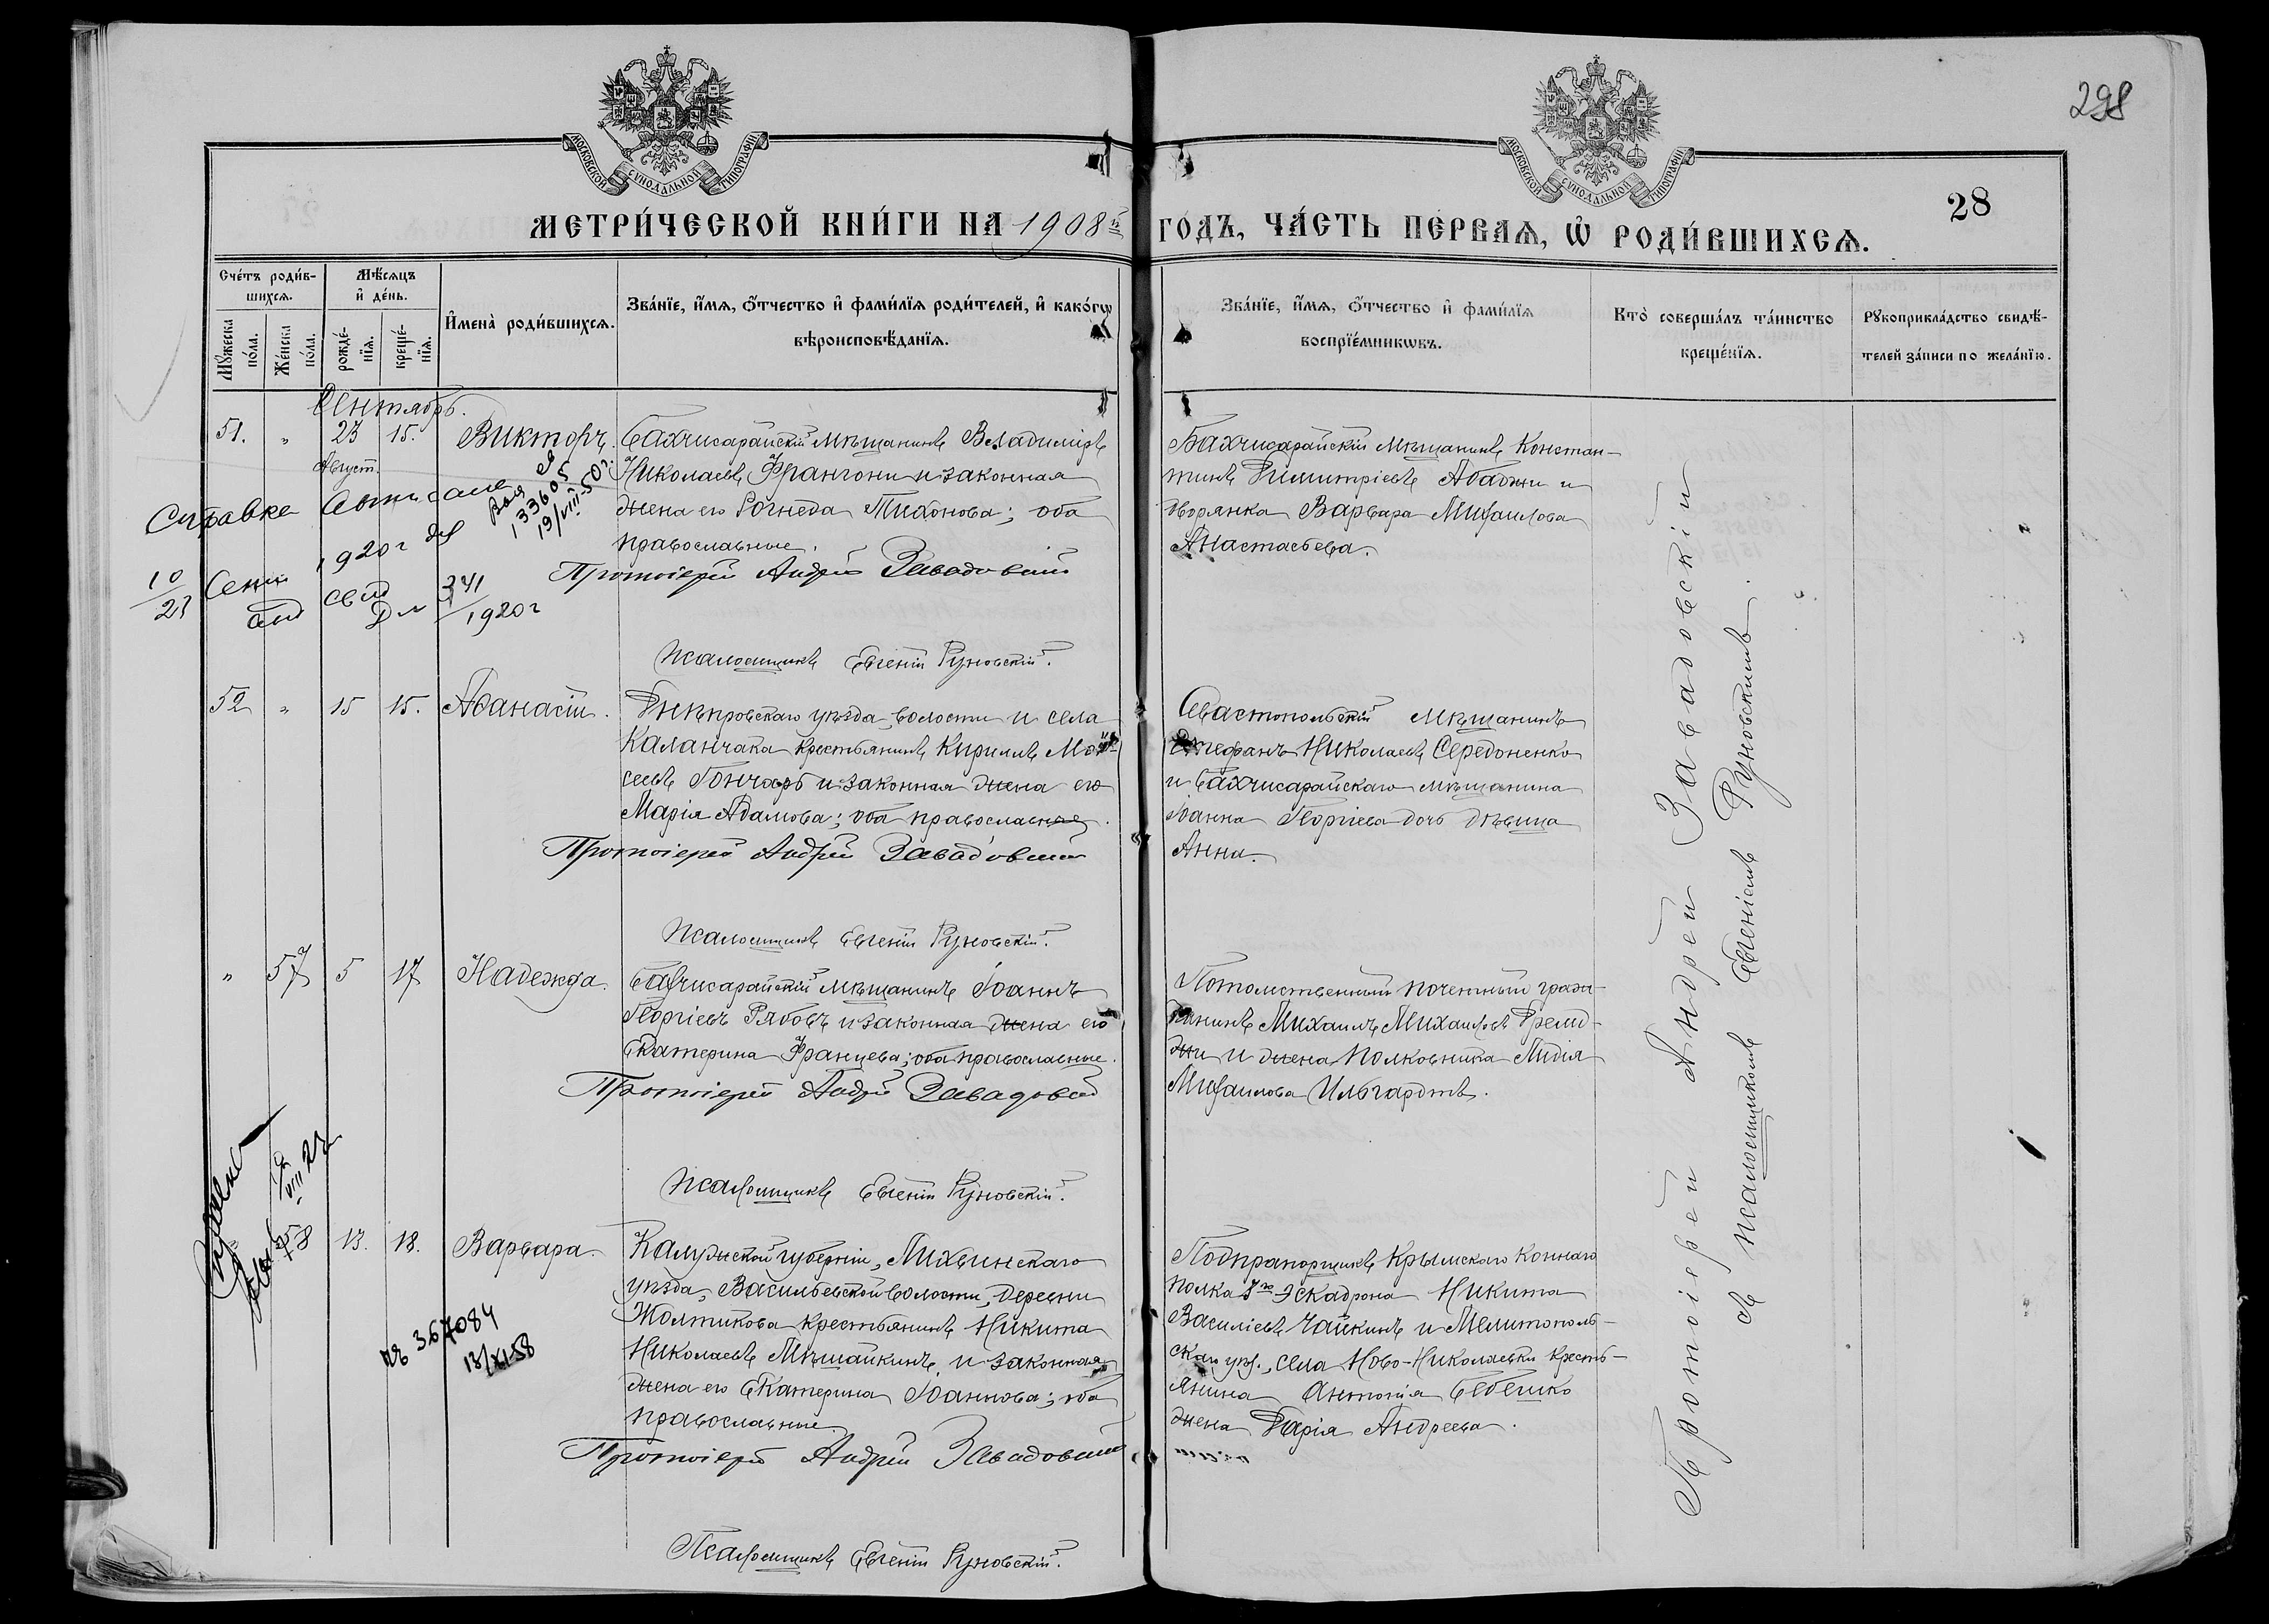 298
МОСКОВСКОЙ СѴНОДАЛЬНОЙ ТИПОГРАФІИ
МОСКОВСКОЙ СѴНОДАЛЬНОЙ ТИПОГРАФІИ
28
МЕТРИ́ЧЕСКОЙ КНИ́ГИ НА 1908й ГОДЪ, ЧА́СТЬ ПЕ́РВАѦ, Ѡ҆ РОДИ́ВШИХСѦ.
Сче́тъ роди́в-
шихсѧ.
Мꙋ́жеска по́ла.
Же́нска по́ла.
Мѣ́сѧцъ
и҆ де́нь.
рожде́-
нїѧ.
креще́-
нїѧ.
И҆мена̀ роди́вшихсѧ.
Зва́нїе, и҆́мѧ, ѻ҆́тчество и҆ фами́лїѧ роди́телей, и҆ како́гѡ
вѣроисповѣ́данїѧ.
Зва́нїе, и҆́мѧ, ѻ҆́тчество и҆ фами́лїѧ
воспрїе́мникѡвъ.
Кто̀ соверша́лъ та́инство
креще́нїѧ.
Рꙋкоприкла́дство свидѣ́-
телей за́писи по жела́нїю.
Сентябрь.
51. „ 23 15. Викторъ.
Август.
Бахчисарайскій мѣщанинъ Владиміръ
Николаевъ Франгони и законная
жена его Рогнеда Тихонова; оба
православные.
Протоіерей Андрей Завадовскій
Псаломщикъ Евгеній Руновскій.
Бахчисарайскій мѣщанинъ Констан-
тинъ Димитріевъ Абаджи и
дворянка Варвара Михаилова
Анастасьева.
Справке
1920г
133605
19/VIII-50г.
10/23 Сент
341/1920г
52 „ 15 15. Аѳанасій.
Днѣпровскаго уѣзда, волости и села
Каланчака крестьянинъ Кириллъ Мои-
сеевъ Гончаръ и законная жена его
Марія Адамова; оба православные.
Протоіерей Андрей Завадовскій
Псаломщикъ Евгеній Руновскій.
Севастопольскій мѣщанинъ
Стефанъ Николаевъ Середоненко
и Бахчисарайскаго мѣщанина
Іоанна Георгіева дочь дѣвица
Анна.
„ 57 5 17 Надежда.
Бахчисарайскій мѣщанинъ Іоаннъ
Георгіевъ Рябовъ и законная жена его
Екатерина Францева; оба православные.
Протоіерей Андрей Завадовскій
Псаломщикъ Евгеній Руновскій.
Потомственный почетный граж-
данинъ Михаилъ Михаиловъ
и жена Полковника Лидія
Михаилова Ильгардтъ.
58 13. 18. Варвара.
Калужской губерніи, Лихвинскаго
уѣзда, Васильевской волости, деревни
Жолтикова крестьянинъ Никита
Николаевъ Мѣшайкинъ и законная
жена его Екатерина Іоаннова; оба
православные.
Протоіерей Андрей Завадовскій
Псаломщикъ Евгеній Руновскій.
367084
13/XI-58
Подпрапорщикъ Крымскаго Коннаго
полка эскадрона Никита
Василіевъ Чайкинъ и Мелитополь-
скаго уѣз., села Ново-Николаевки кресть-
янина Антонія Бебешко
жена Дарія Андреева.
Протоіерей Андрей Завадовскій
съ псаломщикомъ Евгеніемъ Руновскимъ.